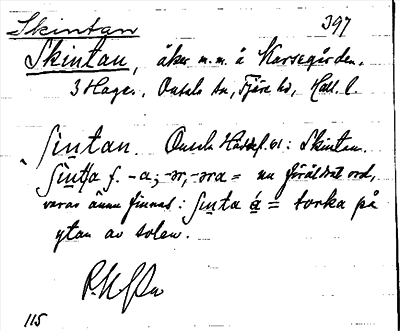 Skintan 397
Skintan, åker m.m. å Karsegården.
3 Hages., Onsala sn, Fjäre hd, Hall. l.
ʃintan. Onsala Hårdsf. 61: Skintan.
ʃinta f. -a, -ər, -əra = nu föråldrat ord,
varav ännu finnes: ʃinta á = torka på
ytan av solen.
115